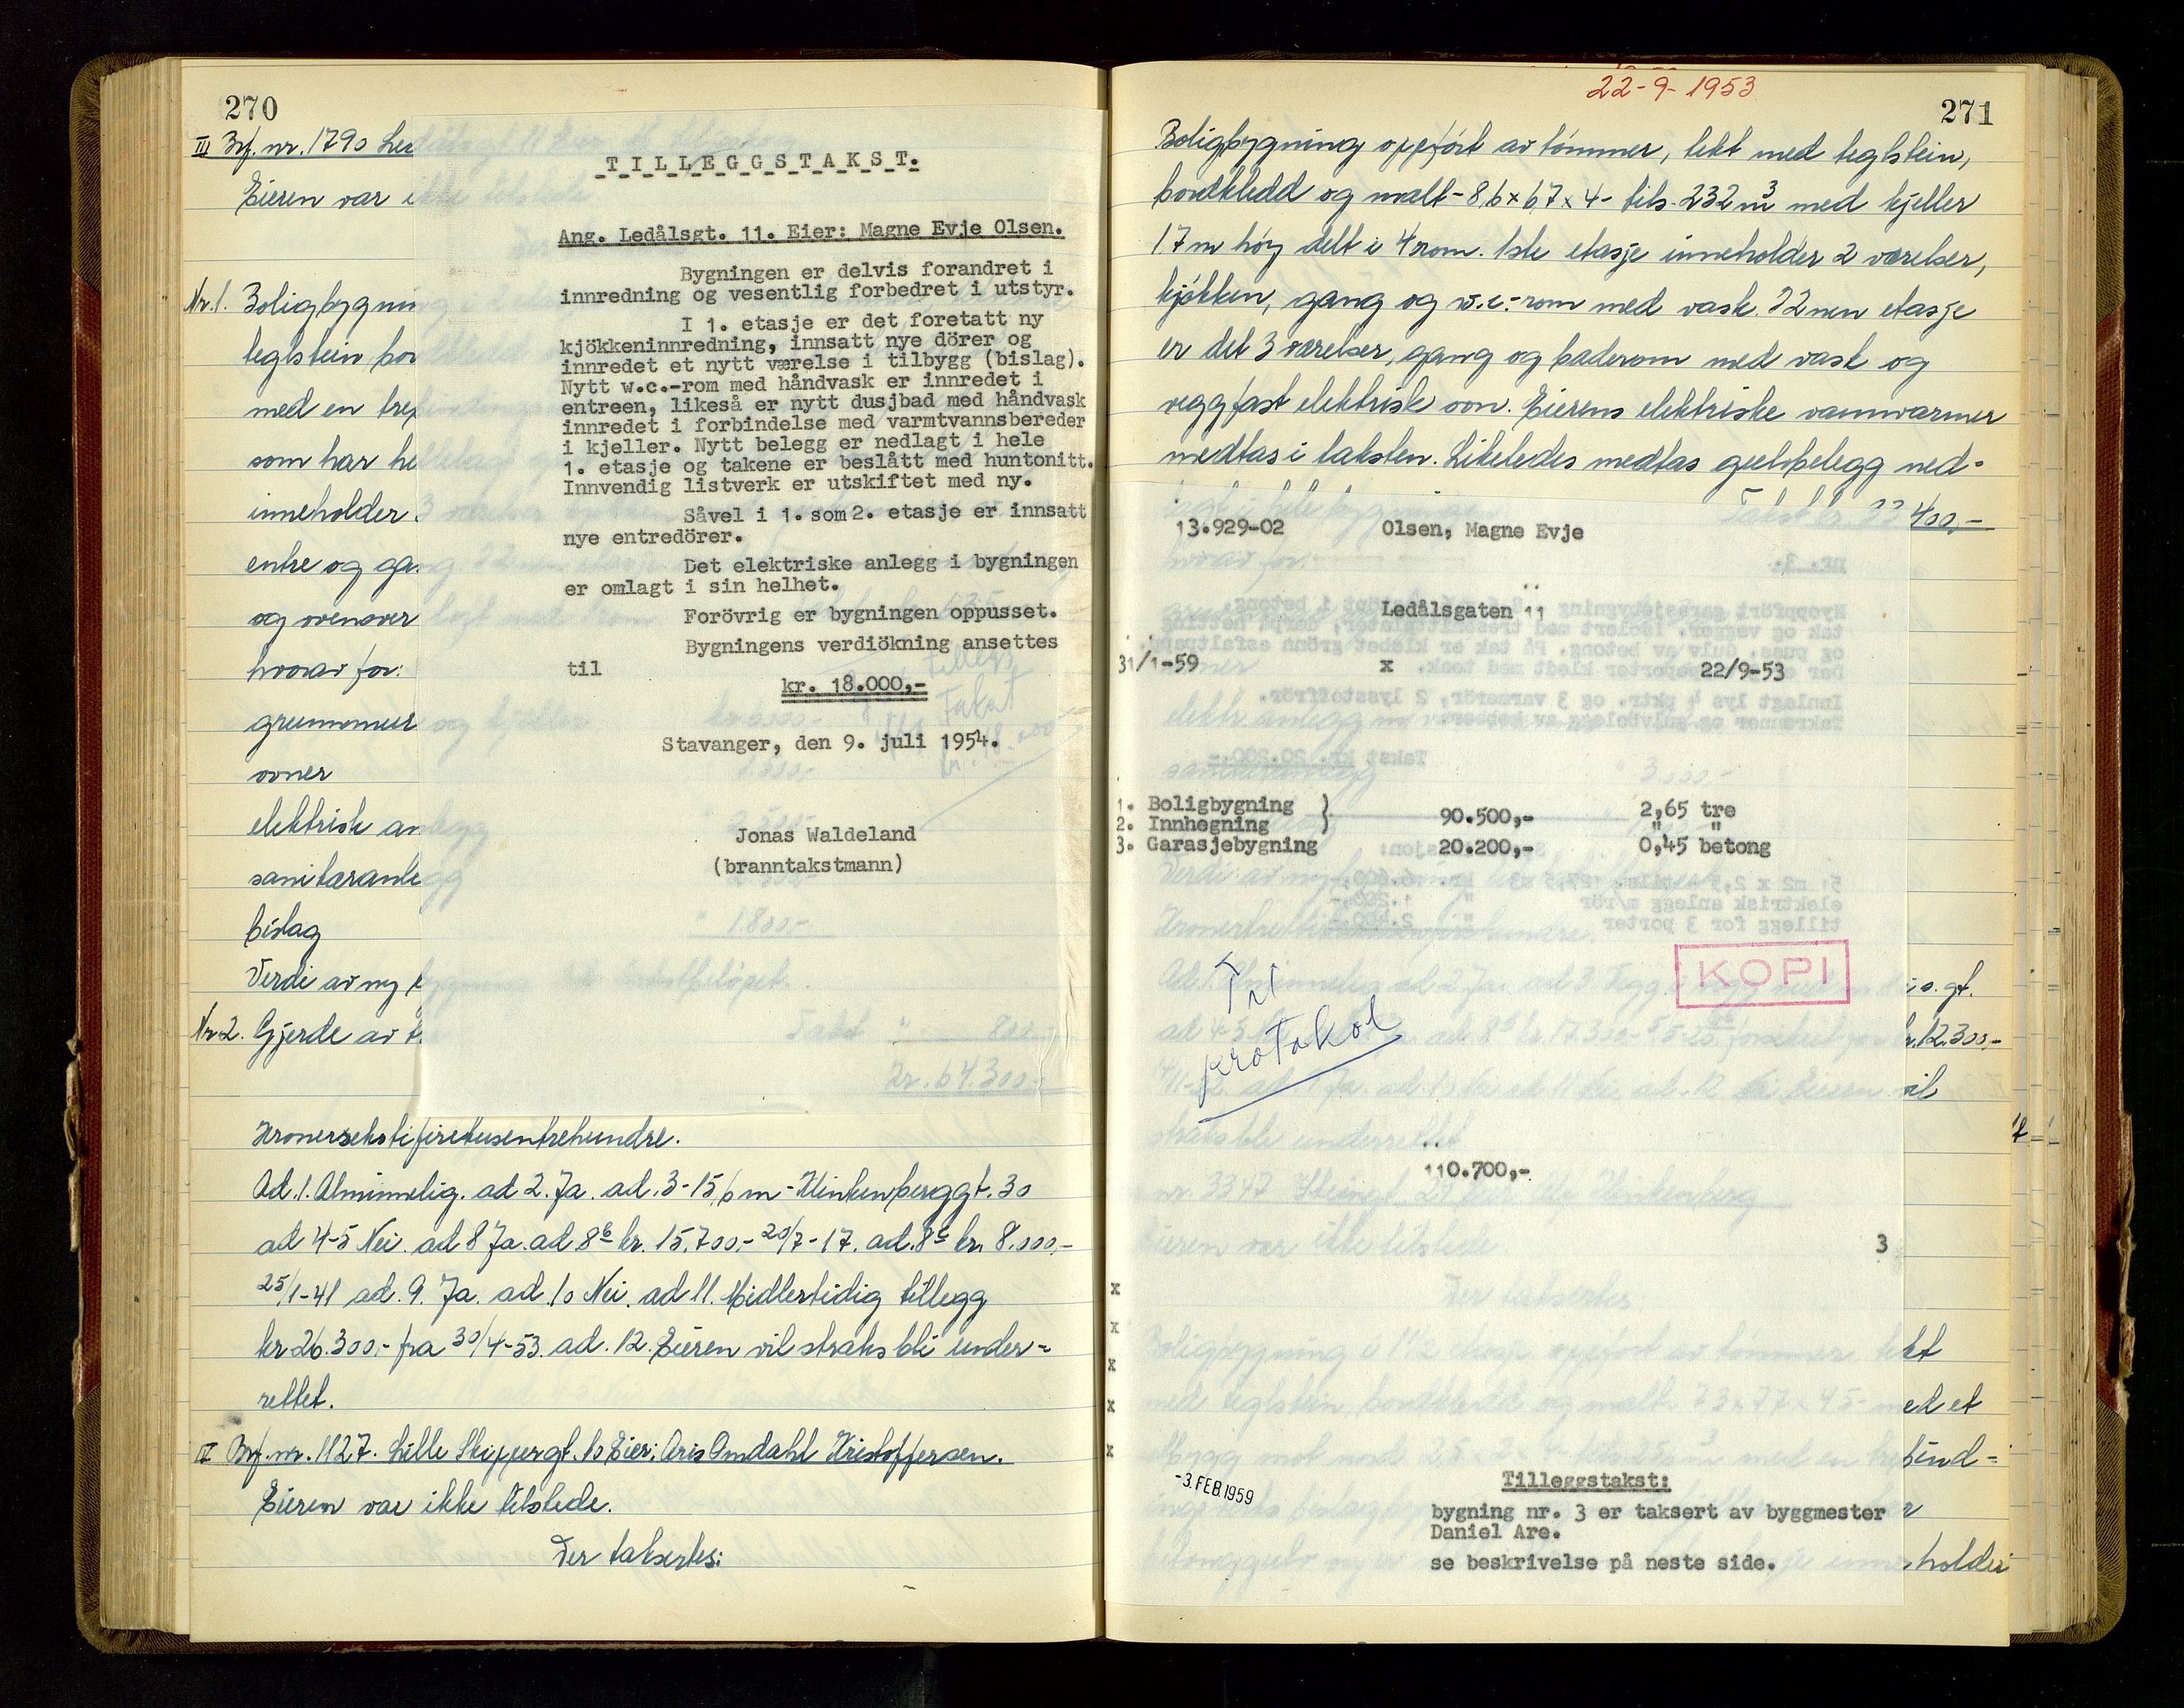 270
III Brf. nr. 1790 Led
Eieren var i
Nr. 1. Boligbygnin
teglstein bor
med en trep
som har he
inneholder
entre og gan
og ovenover
hvorav for:
grunnmur
ovner
elektrisk an
sanitæranle
bislag
Verdi av ny b
Nr 2. Gjerde av t
T_I_L_L_E_G_G_S_T_A_K_S_T.
Ang. Ledålsgt. 11. Eier: Magne Evje Olsen.
Bygningen er delvis forandret i
innredning og vesentlig forbedret i utstyr.
I 1. etasje er det foretatt ny
kjökkeninnredning, innsatt nye dörer og
innredet et nytt værelse i tilbygg (bislag).
Nytt w.c.-rom med håndvask er innredet i
entreen, likeså er nytt dusjbad med håndvask
innredet i forbindelse med varmtvannsbereder
i kjeller. Nytt belegg er nedlagt i hele
1. etasje og takene er beslått med huntonitt.
Innvendig listverk er utskiftet med ny.
Såvel i 1. som 2. etasje er innsatt
nye entredörer.
Det elektriske anlegg i bygningen
er omlagt i sin helhet.
Forövrig er bygningen oppusset.
Bygningens verdiökning ansettes
til
kr. 18.000,-
Stavanger, den 9. juli 1954.
Jonas Waldeland
(branntakstmann)
Kr. 64.300.-
Kronersekstifiretusentrehundre.
Ad. 1. Alminnelig. ad 2. Ja. ad. 3 - 15,6 m - Klinkenberggt. 30
ad 4-5 Nei. ad 8 Ja. ad 8b kr. 15.700,- 20/7-17. ad. 8c kr. 8.000,-
25/1-41 ad. 9. Ja. ad. 10 Nei. ad 11. Midlertidig tillegg
kr 26.300,- fra 30/4-53. ad. 12. Eieren vil straks bli under-
rettet.
IV Brf. nr. 1127. Lille Skippergt. 10 Eier: Aris Omdahl Kristoffersen.
Eieren var ikke tilstede.
Der takseres:
22-9-1953
271
Boligbygning oppført av tømmer, tekt med teglstein,
bordkledd og malt - 8,6 x 6,7 x 4 - tils. 232 m3 med kjeller
1.7 m høy delt i 4 rom. 1ste etasje inneholder 2 værelser,
kjøkken, gang og w.c.-rom med vask. I 2nen etasje
er det 3 værelser, gang og baderom med vask og
veggfast elektrisk ovn. Eierens elektriske vannvarmer
medtas i taksten. Likeledes medtas gulvbelegg ned-
400,-
13.929-02 Olsen, Magne Evje
Ledålsgaten 11
31/1-59 x 22/9-53
1. Boligbygning } 90.500,- 2,65 tre
2. Innhegning } " "
3. Garasjebygning 20.200,- 0,45 betong
KOPI
Int
protokol
is. gt.
kr. 12.300,-
vil
110.700,-
3
x
x
x
x
x
kt
ed et
bind-
r
holder
-3. FEB. 1959
Tilleggstakst:
bygning nr. 3 er taksert av byggmester
Daniel Are.
se beskrivelse på neste side.